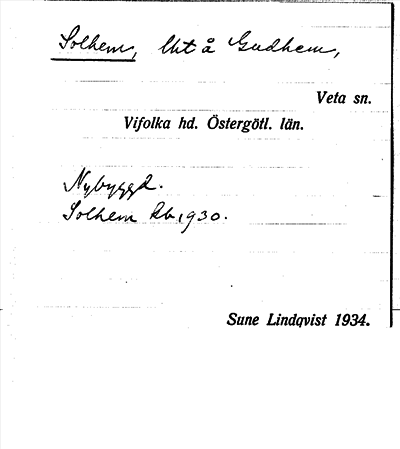 Solhem, lht å Gudhem,
Veta sn.
Vifolka hd. Östergötl. län.
Nybyggd.
Solhem Rb. 1930.
Sune Lindqvist 1934.